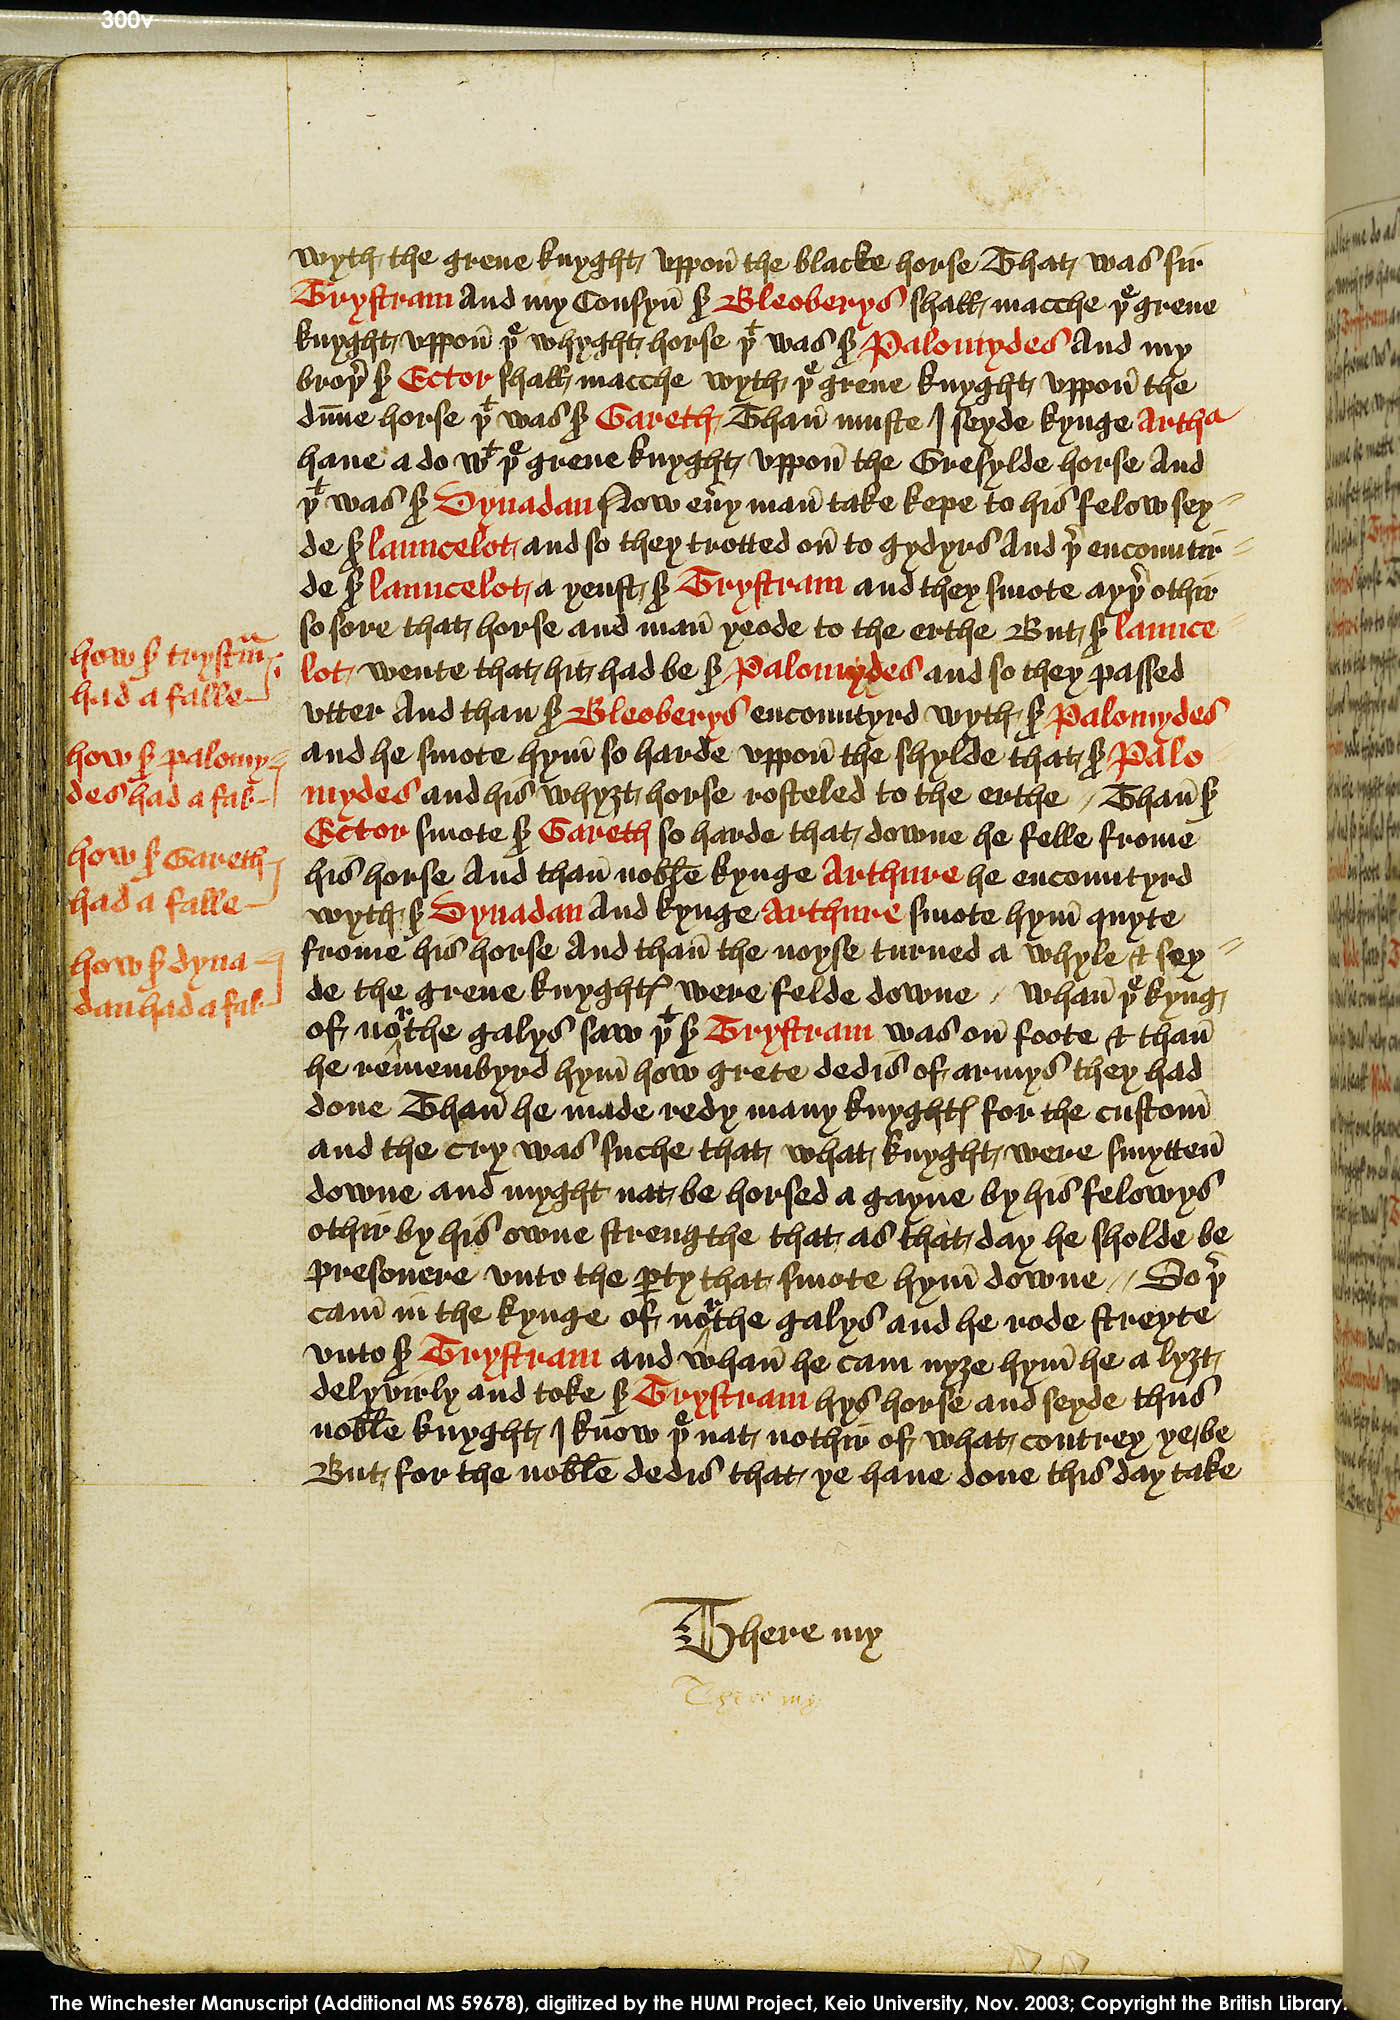 300v
wyth the grene knyght vppon̄ the blacke horse That was sir
Trystram And my Cosyn̄ sͬ Bleoberys shall macche þͤ grene
knyght vppon̄ þͤ whyght horse þͭ was sͬ Palomydes And my
broþ̄ sͬ Ector shall macche wyth þͤ grene knyght vppon̄ the
dūne horse þͭ was sͬ Gareth Than̄ muste I seyde kynge Arthͬ
haue a do wͭ þͤ grene knyght vppon̄ the Gresylde horse And
þͭ was sͬ Dynadan Now eu̾y man̄ take kepe to his felow sey
de sͬ launcelot and so they trotted on̄ to gydyrs And þ̾ encountir
de sͬ launcelot a yenst sͬ Trystram and they smote ayþ̾ othir
so sore that horse and man̄ yeode to the erthe But sͬ launce
lot wente that hit had be sͬ Palomydes and so they passed
vtter And than sͬ Bleoberys encountyrd wyth sͬ Palomydes
and he smote hym̄ so harde vppon̄ the shylde that sͬ Palo
mydes and his whyȝt horse rosteled to the erthe // Than̄ sͬ
Ector smote sͬ Gareth so harde that downe he felle frome
his horse And than̄ noble kynge Arthure he encountyrd
wyth sͬ Dynadan And kynge Arthure smote hym̄ quyte
frome his horse And than̄ the noyse turned a whyle & sey
de the grene knyghtꝭ were felde downe // whan̄ þͤ kyng
of northe galys saw þͭ sͬ Trystram was on̄ foote & than̄
he remembyrd hym̄ how grete dedis of armys they had
done Than̄ he made redy many knyghtꝭ for the custom̄
and the cry was suche that what knyght were smytten̄
downe and myght nat be horsed a gayne by his felowys
othir by his owne strengthe that as that day he sholde be
presonere vnto the ꝑty that smote hym̄ downe // So þ̾
cam̄ in the kynge of northe galys and he rode streyte
vnto sͬ Trystram and whan̄ he cam nyȝe hym̄ he a lyȝt
delyvirly and toke sͬ Trystram hys horse and seyde thus
noble knyght I know þͤ nat nothir of what contrey ye be
But for the noble dedis that ye haue done this day take
There my
There my
how sͬ trystr̄m
had a falle
how sͬ palomy
des had a fall
how sͬ Gareth
had a falle
how sͬ dyna
dan had a fall
The Winchester Manuscript (Additional MS 59678), digitized by the HUMI Project, Keio University, Nov. 2003; Copyright the British Library.